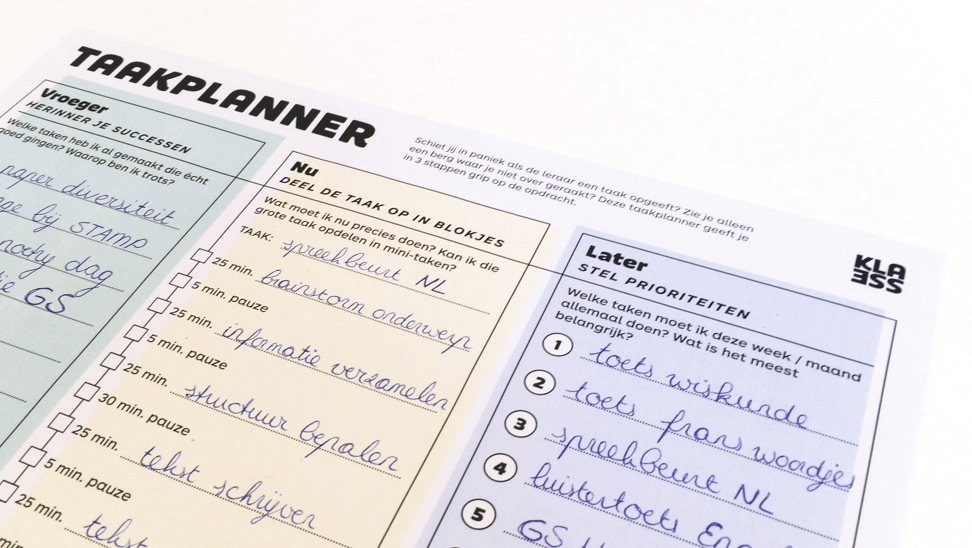 TAAKPLANNER
Schiet jij in paniek als de leraar een taak opgeeft? Zie je alleen
een berg waar je niet over geraakt? Deze taakplanner geeft je
in 3 stappen grip op de opdracht.
KLA
SSE
Vroeger
HERINNER JE SUCCESSEN
Welke taken heb ik al gemaakt die écht
goed gingen? Waarop ben ik trots?
paper diversiteit
bij STAMP
dag
GS
Nu
DEEL DE TAAK OP IN BLOKJES
Wat moet ik nu precies doen? Kan ik die
grote taak opdelen in mini-taken?
TAAK: spreekbeurt NL
25 min. brainstorm onderwerp
5 min. pauze
25 min. informatie verzamelen
5 min. pauze
25 min. structuur bepalen
30 min. pauze
25 min. tekst schrijven
5 min. pauze
25 min. tekst
min.
Later
STEL PRIORITEITEN
Welke taken moet ik deze week / maand
allemaal doen? Wat is het meest
belangrijk?
1 toets wiskunde
2 toets frans woordjes
3 spreekbeurt NL
4 luistertoets
5 GS